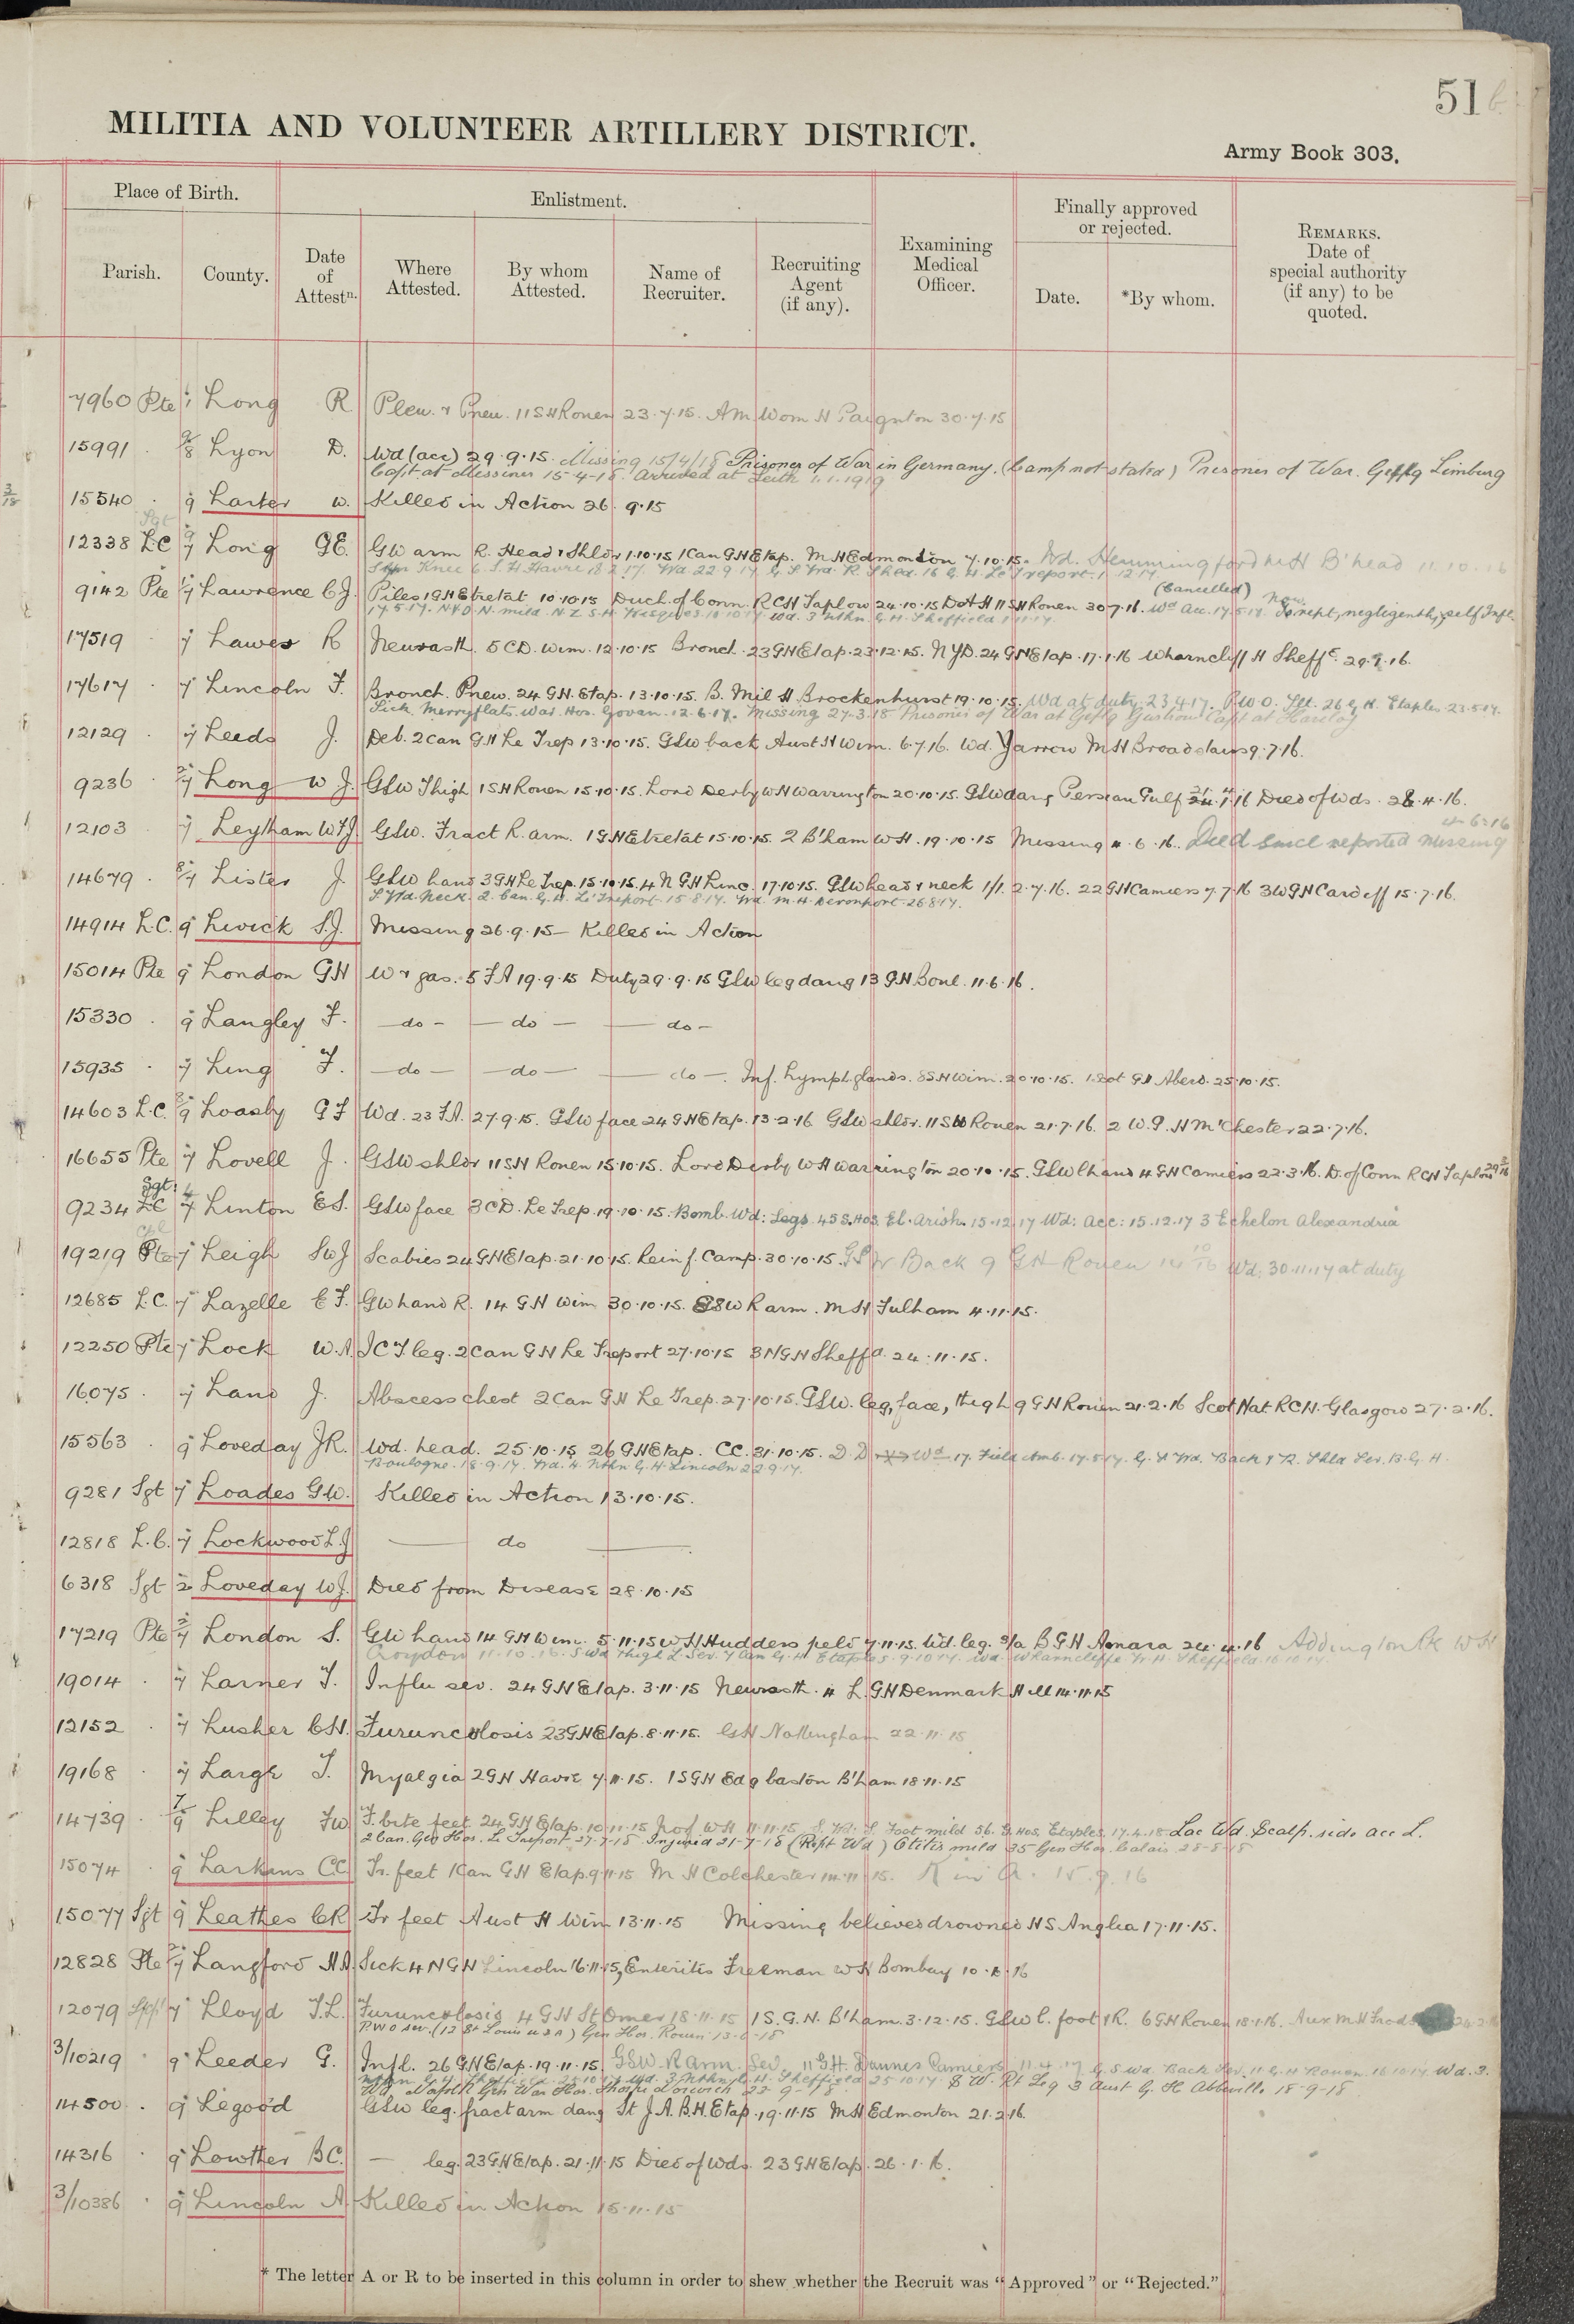 51
MILITIA AND VOLUNTEER ARTILLERY DISTRICT.
Army Book 303.
Place of Birth.
Enlistment.
Finally approved or rejected.
Parish.
County.
Date of Attestn.
Where Attested.
By whom Attested.
Name of Recruiter.
Recruiting Agent (if any).
Examining Medical Officer.
Date.
*By whom.
REMARKS. Date of special authority (if any) to be quoted.
7960 Pte 1 Long R Pleu. & Pneu. 11 S H Rouen 23.7.15. Am. Wom H Paignton 30.7.15
15991 . 9/8 Lyon D. Wd (acc) 29.9.15. Missing 15/4/18 Prisoner of War in Germany. (Camp not stated) Prisoner of War. Limburg
Capt. at Messines 15-4-18. Arrived at Leith 1.1.1919
15540 . 9 Larter W. Killed in Action 26.9.15
Sgt
12338 L.C 9/7 Long G E. G W arm R. Head & Shldr 1.10.15 1 Can G H Etap. M H Edmonton 7.10.15. Wd. Hemmingford M H B'head 11.10.16
Knee 6. S. H Havre 18 2 17. Wd 22 9 17 G S Wd. R. Shld. 16 G. H. Le Treport. 1 12 17
(Cancelled)
9142 Pte 1/7 Lawrence C J. Piles 1 G H Etretat 10.10.15 Duch. of Conn. R C H Taplow 24.10.15 D A H 11 S H Rouen 30.7.16. Wd acc. 17.5.17. Now rept, negligently, self Infl.
17.5.17. N.Y.D.N. mild. N.Z.S.H. Wisques 10 10 17. Wd. 3 Nthn. G. H. Sheffield 1 11 17
17519 . 7 Lawes R Neurasth. 5 C D. Wim. 12.10.15 Bronch. 23 G H Etap. 23.12.15. N Y D. 24 G H Etap. 17.1.16 Wharncliff H Sheff
17617 . 7 Lincoln F. Bronch. Pneu. 24 G H. Etap. 13.10.15. B. Mil H Brockenhurst 19.10.15. Wd at duty 23 4 17. P.U.O. 26 G. H. Etaples 23.5.17.
Sick. Merryflats. War. Hos. Govan. 12.6.17. Missing 27-3-18 Prisoner of War at Gefg Gustrow Capt at
12129 . 7 Leeds J. Deb. 2 Can G H Le Trep 13.10.15. G S W back Aust H Wim. 6.7.16. Wd. Yarrow M H Broadstairs 9.7.16.
9236 . 2/7 Long W J. G S W Thigh 1 S H Rouen 15.10.15. Lord Derby W H Warrington 20.10.15. G S W dang Persian Gulf Died of Wds. 28.4.16.
12103 . 7 Leytham W F J. G S W. Fract R. arm. 1 G H Etretat 15.10.15. 2 B'ham W H. 19.10.15 Missing 4.6.16. Died since reported missing
14679 . 8/7 Lister J. G S W hand 3 G H Le Trep. 15.10.15. 4 N G H Linc. 17.10.15. G S W head & neck 1/1. 2.7.16. 22 G H Camiers 7.7.16 3 W G H Cardiff 15.7.16.
S Wd. Neck. 2. Can. G. H. Le Treport 15.8.17. Wd. M. H. Devonport. 26 8 17.
14914 L.C. 9 Livick S. J. Missing 26.9.15 — Killed in Action
15014 Pte 9 London G H W & gas. 5 F A 19.9.15 Duty 29.9.15 G S W leg dang 13 G H Boul. 11.6.16.
15330 . 9 Langley F. — do — — do — — do —
15935 . 7 Ling F. — do — — do — — do —. Inf. Lymph glands. 8 S H Wim. 20.10.15. 1 Scot G H Aberd. 25.10.15.
14603 L.C. 8/9 Loasby G F Wd. 23 F A. 27.9.15. G S W face 24 G H Etap. 13.2.16 G S W shldr. 11 S H Rouen 21.7.16. 2 W. G. H M'chester 22.7.16.
16655 Pte 7 Lovell J. G S W shldr 11 S H Rouen 15.10.15. Lord Derby W H Warrington 20.10.15. G S W l hand 4 G H Camiers 22.3.16. D. of Conn R C H Taplow
Sgt
9234 L.C 4/7 Linton E S. G S W face 3 C D. Le Trep. 19.10.15. Bomb. Wd: Legs. 45 S. Hos. El. Arish. 15.12.17 Wd: Acc: 15.12.17 3 Echelon Alexandria
Cpl
19219 Pte 7 Leigh S W J Scabies 24 G H Etap. 21.10.15. Reinf. Camp. 30.10.15. G S W Back 9 G H Rouen Wd: 30.11.17 at duty
12685 L.C. 7 Lazelle E F. G W hand R. 14 G H Wim 30.10.15. G S W R arm. M H Fulham 4.11.15.
12250 Pte 7 Lock W. A. I C T leg. 2 Can G H Le Treport 27.10.15 3 N G H Sheffd. 24.11.15.
16075 . 7 Land J. Abscess chest 2 Can G H Le Trep. 27.10.15. G S W. leg, face, thigh 9 G H Rouen 21.2.16 Scot Nat. R C H. Glasgow 27.2.16.
15563 . 9 Loveday J R. Wd. head. 25.10.15 26 G H Etap. C C. 31.10.15. D. D Wd 17. Field Amb. 17.5.17. G. S Wd. Back & R. Shld Sev. 13. G. H.
Boulogne. 18.9.17. Wd. 4. Nthn G. H. Lincoln 22 9 17.
9281 Sgt 7 Loades G W. Killed in Action 13.10.15.
12818 L.C. 7 Lockwood L. J — do —
6318 Sgt 2 Loveday W J. Died from Disease 28.10.15
17219 Pte 2/7 London S. G W hand 14 G H Wim. 5.11.15 W H Huddersfield 7.11.15. Wd. leg. B G H Amara 24.4.16 Addington Pk W H
Croydon 11.10.16. S Wd Thigh L. Sev. 7 Can G. H Etaples. 9.10.17. Wd. Wharncliffe W. H. Sheffield. 16 10 17.
19014 . 7 Larner T. Influ sev. 24 G H Etap. 3.11.15 Neurasth. 4 L. G H Denmark Hill 14.11.15
12152 . 7 Lusher C H. Furunculosis 23 G H Etap. 8.11.15. G H Nottingham 22.11.15
19168 . 7 Large T. Myalgia 2 G H Havre 7.11.15. 1 S G H Edgbaston B'ham 18.11.15
14739 . 7/9 Lilley F W F. bite feet 24 G H Etap. 10.11.15 Nof W H 11.11.15 Foot mild 56. G. Hos. Etaples. 17.4.18 Lac Wd Scalp. side acc L.
2 Can. Gen Hos. Le Treport 27-7-18 Injured 21-7-18 (Rept Wd) Otitis mild 35 Gen Hos. Calais. 28-8-18
15074 . 9 Larkins C C. Tr. feet 1 Can G H Etap. 9.11.15 M H Colchester 14.11.15. K in A. 15.9.16
15077 Sgt 9 Leathes C R Tr feet Aust H Wim 13.11.15 Missing believed drowned H S Anglia 17.11.15.
12828 Pte 2/7 Langford H A. Sick 4 N G H Lincoln 16.11.15, Enteritis Freeman W H Bombay
12079 7 Lloyd T. L. Furunculosis 4 G H St Omer 18.11.15 1 S. G. H. B'ham. 3.12.15. G S W l. foot & R. 6 G H Rouen 18.1.16. Aux M H
P U O sev. (12 St Louis U S A) Gen Hos. Rouen 13-6-18
3/10219 . 9 Leeder G. Infl. 26 G H Etap. 19.11.15. G S W. R arm. Sev. 11 G. H. Dannes Camiers 11.4.17 G S Wd. Back Sev. 11 G. H Rouen. 16 10 17 Wd. 3.
Nthn. G. H. Sheffield 25 10 17 Wd. 3. Nthn. G. H. Sheffield 25 10 17. S W. Rt Leg 3 Aust G. H Abbeville 18-9-18
Wd. Norfolk Gen War Hos. Thorpe Norwich 22-9-18
14500 . 9 Legood G S W leg. fract arm dang St J. A. B. H. Etap. 19.11.15 M H Edmonton 21.2.16.
14316 . 9 Lowther B C. — leg. 23 G H Etap. 21.11.15 Died of Wds. 23 G H Etap. 26.1.16.
3/10386 . 9 Lincoln A. Killed in Action 15.11.15
* The letter A or R to be inserted in this column in order to shew whether the Recruit was "Approved" or "Rejected."